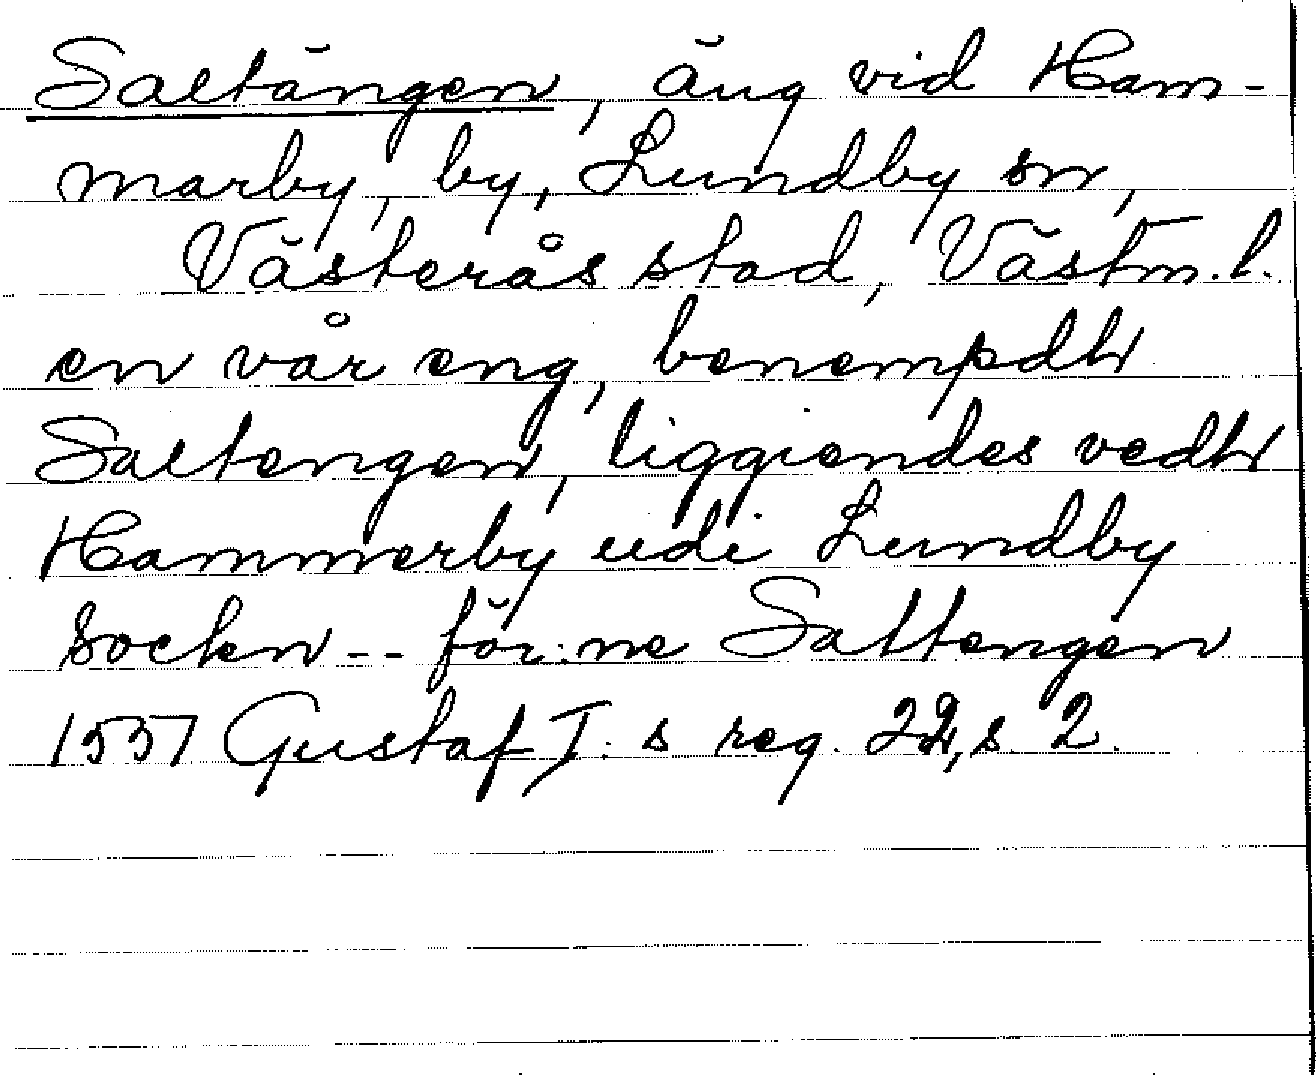 Saltängen, äng vid Ham-
marby, by, Lundby sn,
Västerås stad, Västm. l.
en vår eng, benempdh
Saltengen, liggiendes vedh
Hammerby udi Lundby
socken -- för:ne Saltengen
1537 Gustaf I:s reg. 22, s. 2.